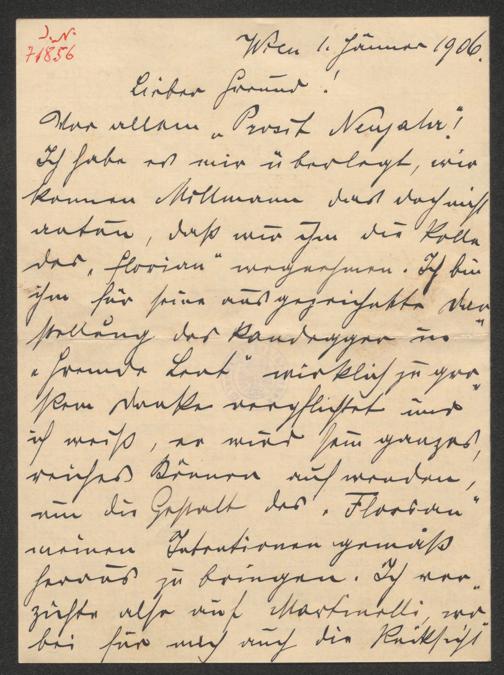 J. N.
71856
Wien 1. Jänner 1906.
Lieber Freund!
Vor allem „Prosit Neujahr“!
Ich habe es mir überlegt, wir
können Millmann das doch nicht
antun, daß wir ihm die Rolle
des „Florian“ wegnehmen. Ich bin
ihm für seine ausgezeichnete Dar-
stellung des Kandegger in
„Fremde Leut“ wirklich zu gro-
ßem Danke verpflichtet und
ich weiß, er wird sein ganzes,
reiches Können aufwenden,
um die Gestalt des „Florian“
meinen Intentionen gemäß
heraus zu bringen. Ich ver-
zichte also auf Martinelli, wo-
bei für mich auch die Rücksicht